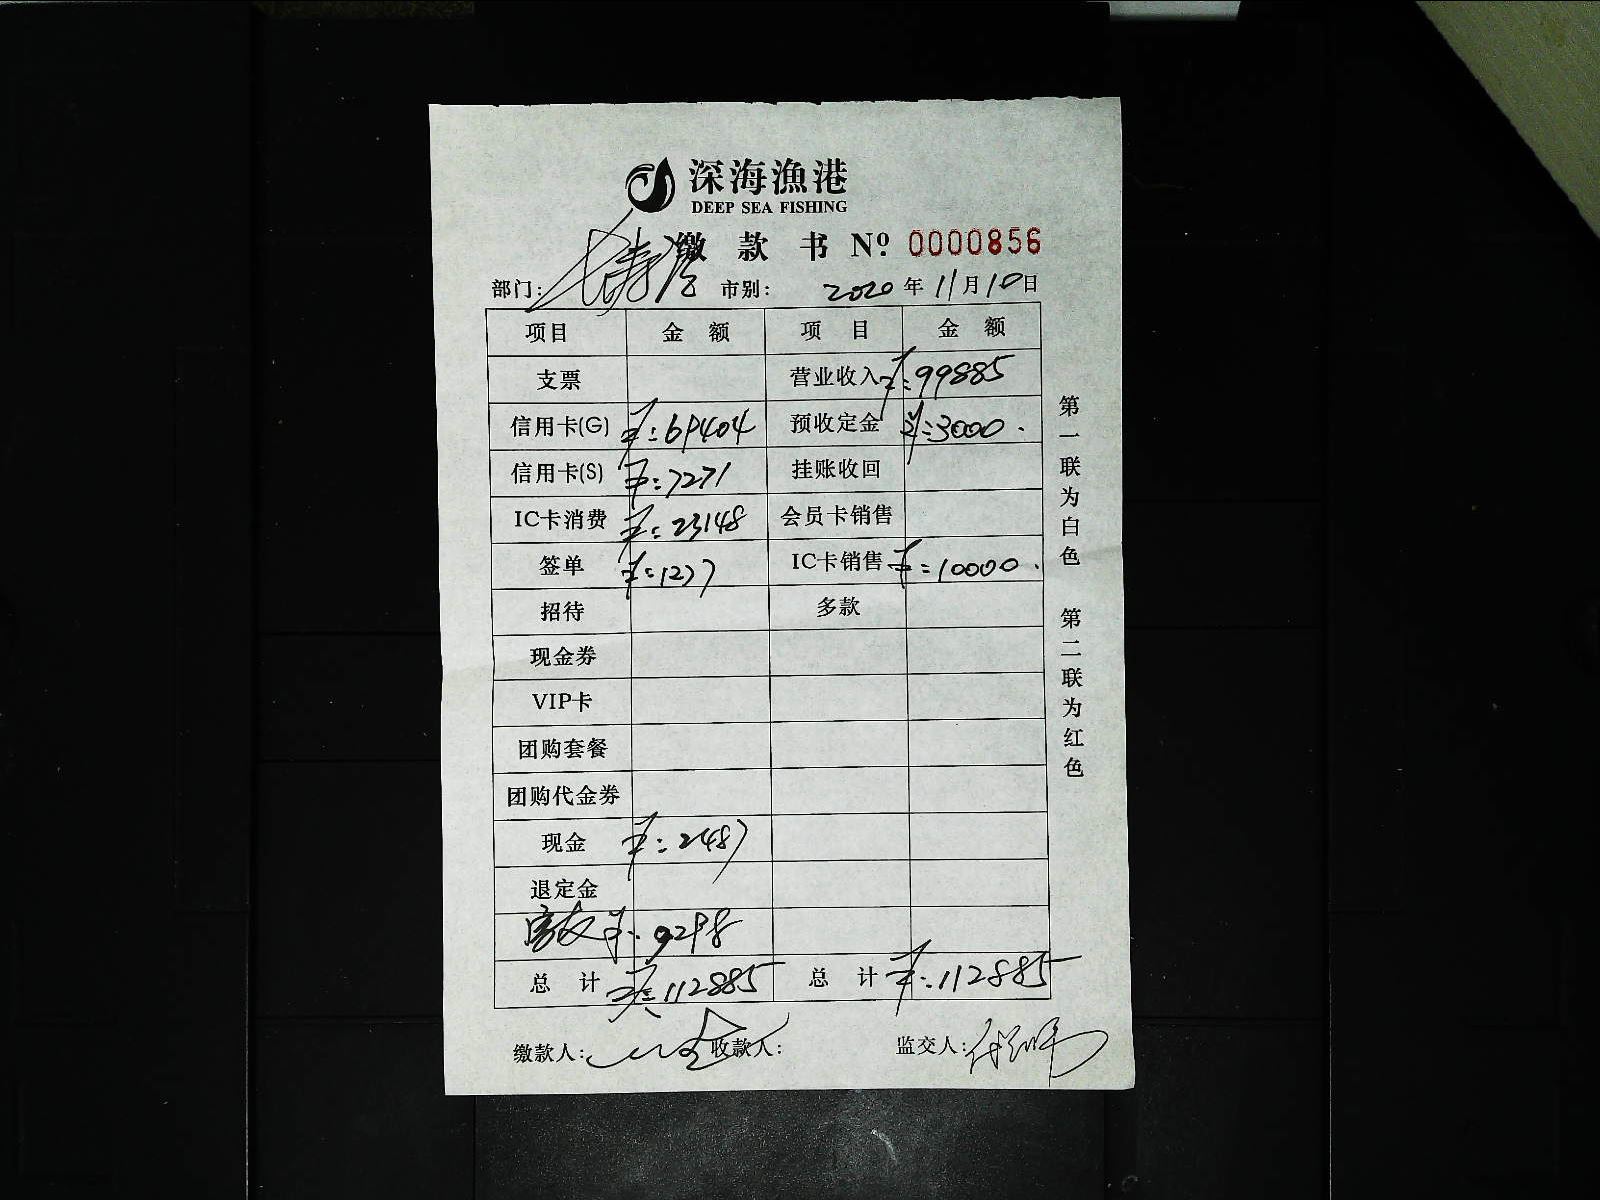 深海漁港
DEEP SEA FISHING
缴款书 Nº 0000856
部门： 市别： 2020年11月10日
项目 金额 项目 金额
支票 营业收入 ¥:99885
信用卡(G) ¥:69404 预收定金 ¥:3000.
信用卡(S) ¥:7271 挂账收回
IC卡消费 ¥:23148 会员卡销售
签单 ¥:1277 IC卡销售 ¥:10000.
招待 多款
现金券
VIP卡
团购套餐
团购代金券
现金 ¥:2487
退定金
¥:9298
总计 ¥:112885 总计 ¥:112885
缴款人： 收款人： 监交人：
第一联为白色 第二联为红色